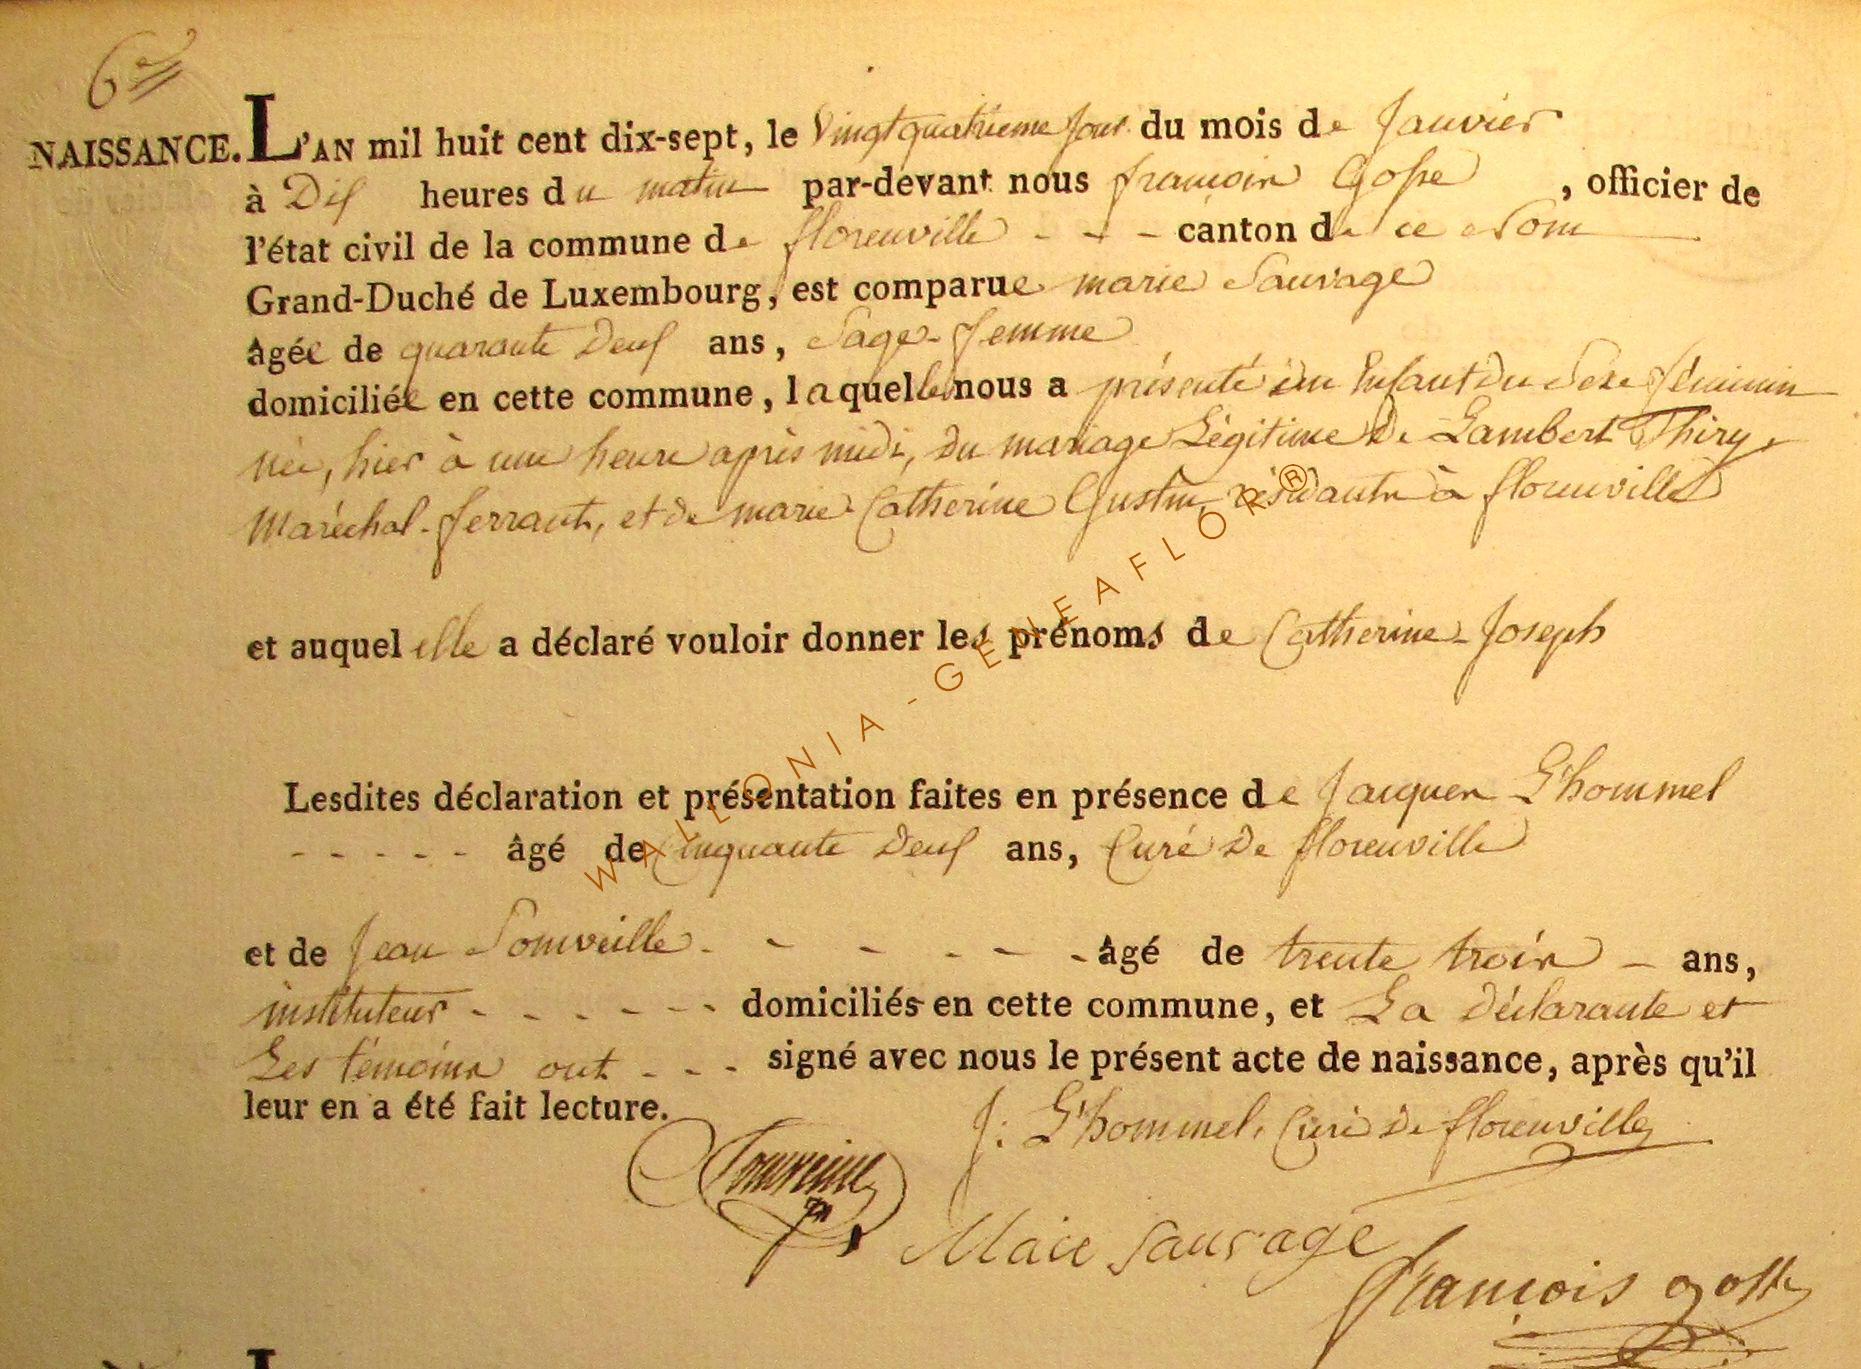 6e
NAISSANCE. L'AN mil huit cent dix-sept, le Vingtquatrieme Jour du mois de Janvier
à Dix heures du matin par-devant nous françois Gosse, officier de
l'état civil de la commune de florenville - - - canton de ce Nom
Grand-Duché de Luxembourg, est comparue marie Sauvage
âgée de quarante Deux ans, Sage-femme
domiciliée en cette commune, laquelle nous a présenté un Enfant du Sexe féminin
née, hier à une heure après midi, du mariage Légitime de Lambert Thiry,
Maréchal-ferrant, et de marie Catherine Gustin, résidants à florenville
et auquel elle a déclaré vouloir donner les prénoms de Catherine-Joseph
Lesdites déclaration et présentation faites en présence de Jacques L'hommel
- - - - - âgé de Cinquante Deux ans, Curé de florenville
et de Jean Somveille - - - - - - âgé de trente trois - ans,
instituteur - - - - - - domiciliés en cette commune, et La déclarante et
Les témoins ont - - - signé avec nous le présent acte de naissance, après qu'il
leur en a été fait lecture.
J: L'hommel, Curé de florenville
Somveille
Marie Sauvage
françois gosse
WALLONIA-GENEAFLOR®